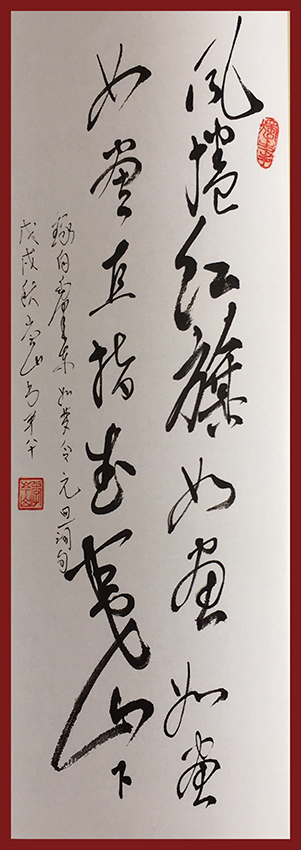 风捲红旗如畫如畫
如畫直指武夷山下
录自毛泽东如梦令元旦词句
戊戌秋